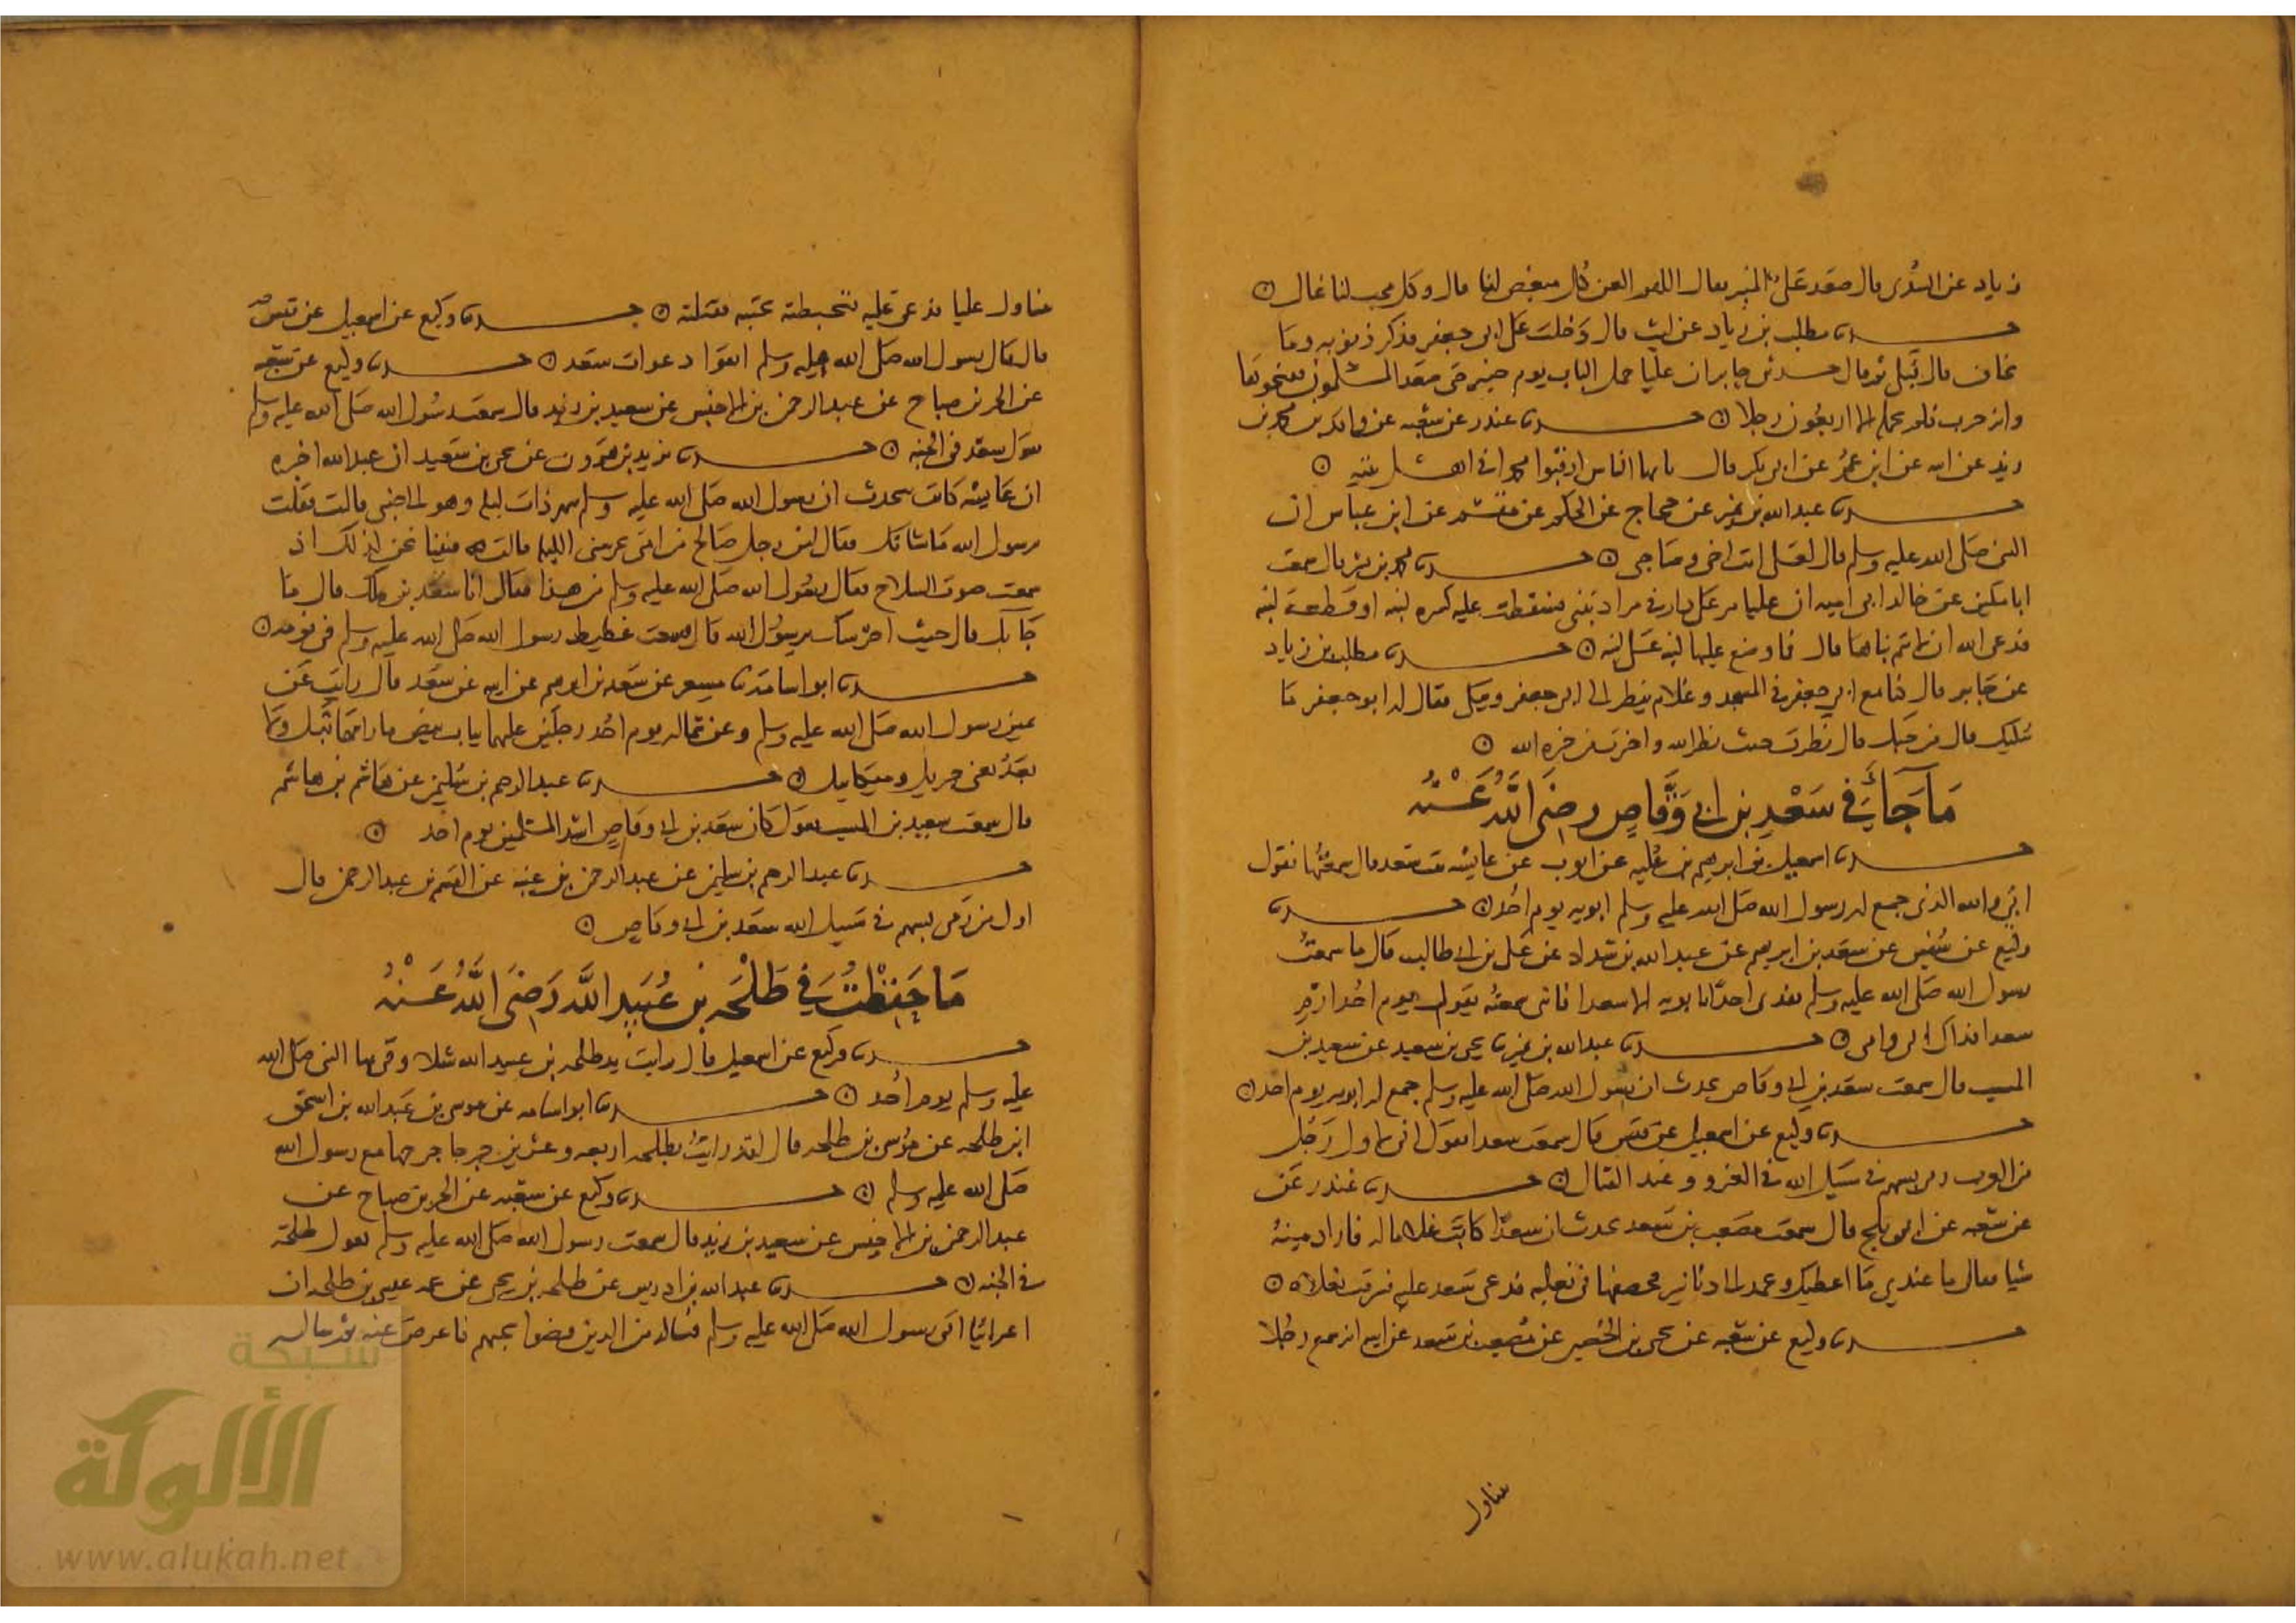 زياد عن السدي قال صعد علي المنبر فقال اللهم العن كل مبغض لنا قال وكل محب لنا غال ن
حدثنا مطلب بن زياد عن ليث قال دخلت على ابي جعفر فذكر ذنوبه وما
تخاف قال فبكى ثم قال حدثني جابر ان عليا حمل الباب يوم خيبر حتى صعد المسلمون ففتحوها
وانه جرب فلم يحمله الا اربعون رجلا ن حدثنا غندر عن شعبه عن واقد بن محمد بن
زيد عن ابيه عن ابن عمر عن ابي بكر قال يا ايها الناس ارقبوا محمدا في اهل بيته ن
حدثنا عبد الله بن نمير عن حجاج عن الحكم عن مقسم عن ابن عباس ان
النبي صلى الله عليه وسلم قال لعلي انت اخي وصاحبي ن حدثنا محمد بن بشر قال سمعت
ابا مكين عن خالد ابي اميه ان عليا مر على دار في مراد تبنى فسقطت عليه كسره لبنه او قطعة لبنه
فدعى الله ان لا يتم بناها قال فما وضع عليها لبنه على لبنه ن حدثنا مطلب بن زياد
عن جابر قال كنا مع ابي جعفر في المسجد وغلام ينظر الى ابي جعفر ويبكي فقال له ابو جعفر ما
يبكيك قال من حبك قال نظرت حيث نظر الله واخترت من خيره الله ن
مَا جَآءَ فِي سَعْدِ بن ابي وَقَّاصٍ رضي اللَّهُ عَنْهُ
حدثنا اسمعيل بن ابراهيم بن عليه عن ايوب عن عايشه بنت سعد قال سمعتها تقول
ابي والله الذي جمع له رسول الله صلى الله عليه وسلم ابويه يوم احد ن حدثنا
وكيع عن سفين عن سعد بن ابرهيم عن عبد الله بن شداد عن علي بن ابي طالب قال ما سمعت
رسول الله صلى الله عليه وسلم يفدي احدا بابويه الا سعدا فاني سمعته يقول يوم احد ارم
سعد فداك ابي وامي ن حدثنا عبد الله بن نمير ثنا يحيى بن سعيد عن سعيد بن
المسيب قال سمعت سعد بن ابي وقاص يحدث ان رسول الله صلى الله عليه وسلم جمع له ابويه يوم احد ن
حدثنا وكيع عن اسمعيل عن قيس قال سمعت سعدا يقول اني لاول رجل
من العرب رمى بسهم في سبيل الله في الغزو وعند القتال ن حدثنا غندر عن
عن شعبه عن ابي بلج قال سمعت مصعب بن سعد يحدث ان سعدا كاتب غلاما له فاراد منه
شيا فقال ما عندي ما اعطيك وعمد الى دنانير فخصفها في نعليه فدعى سعد عليه فسرقت نعلاه ن
حدثنا وكيع عن شعبه عن يحيى بن الحصين عن مصعب بن سعد عن ابيه انه سمع رجلا
يتناول
يتناول عليا فدعى عليه فتخبطته بختيه فقتلته ن حدثنا وكيع عن اسمعيل عن قيس
قال قال رسول الله صلى الله عليه وسلم اتقوا دعوات سعد ن حدثنا وكيع عن شعبه
عن الحر بن صباح عن عبد الرحمن بن الاخنس عن سعيد بن زيد قال سمعت رسول الله صلى الله عليه وسلم
يقول سعد في الجنه ن حدثنا يزيد بن هرون عن يحيى بن سعيد ان عبد الله اخبره
ان عايشه كانت تحدث ان رسول الله صلى الله عليه وسلم سهر ذات ليله وهو الى جنبي قالت فقلت
يرسول الله ما شانك فقال ليت رجل صالح من امتي يحرسني الليله قالت فبينا نحن كذلك اذ
سمعت صوت السلاح فقال رسول الله صلى الله عليه وسلم من هذا فقال انا سعد بن ملك قال ما
جا بك قال جيت احرسك يرسول الله قال فسمعت غطيط رسول الله صلى الله عليه وسلم في نومه ن
حدثنا ابو اسامة ثنا مسعر عن سعد بن ابرهيم عن ابيه عن سعد قال رايت عن
يمين رسول الله صلى الله عليه وسلم وعن شماله يوم احد رجلين عليهما ثياب بيض ما رايتهما قبل ولا
بعد يعني جبريل وميكايل ن حدثنا عبد الرحيم بن سليمن عن هاشم بن هاشم
قال سمعت سعيد بن المسيب يقول كان سعد بن ابي وقاص اشد المسلمين يوم احد ن
حدثنا عبد الرحيم بن سليمن عن عبد الرحمن بن عتبه عن القسم بن عبد الرحمن قال
اول من رمى بسهم في سبيل الله سعد بن ابي وقاص ن
مَا حَفِظْتُ فِي طَلْحَه بن عُبَيدِ اللَّه رَضِيَ اللَّهُ عَنْهُ
حدثنا وكيع عن اسمعيل قال رايت يد طلحه بن عبيد الله شلاء وقى بها النبي صلى الله
عليه وسلم يوم احد ن حدثنا ابو اسامه عن موسى بن عبد الله بن اسحق
ابن طلحه عن موسى بن طلحه قال لقد رايت بطلحه اربعه وعشرين جرحا جرحها مع رسول الله
صلى الله عليه وسلم ن حدثنا وكيع عن شعبه عن الحر بن صباح عن
عبد الرحمن بن الاخنس عن سعيد بن زيد قال سمعت رسول الله صلى الله عليه وسلم يقول طلحة
في الجنه ن حدثنا عبد الله بن ادريس عن طلحه بن يحيى عن عمه عيسى بن طلحه ان
اعرابيا اتى رسول الله صلى الله عليه وسلم فساله من الذين قضوا نحبهم فاعرض عنه ثم ساله
شبكة
الألوكة
www.alukah.net